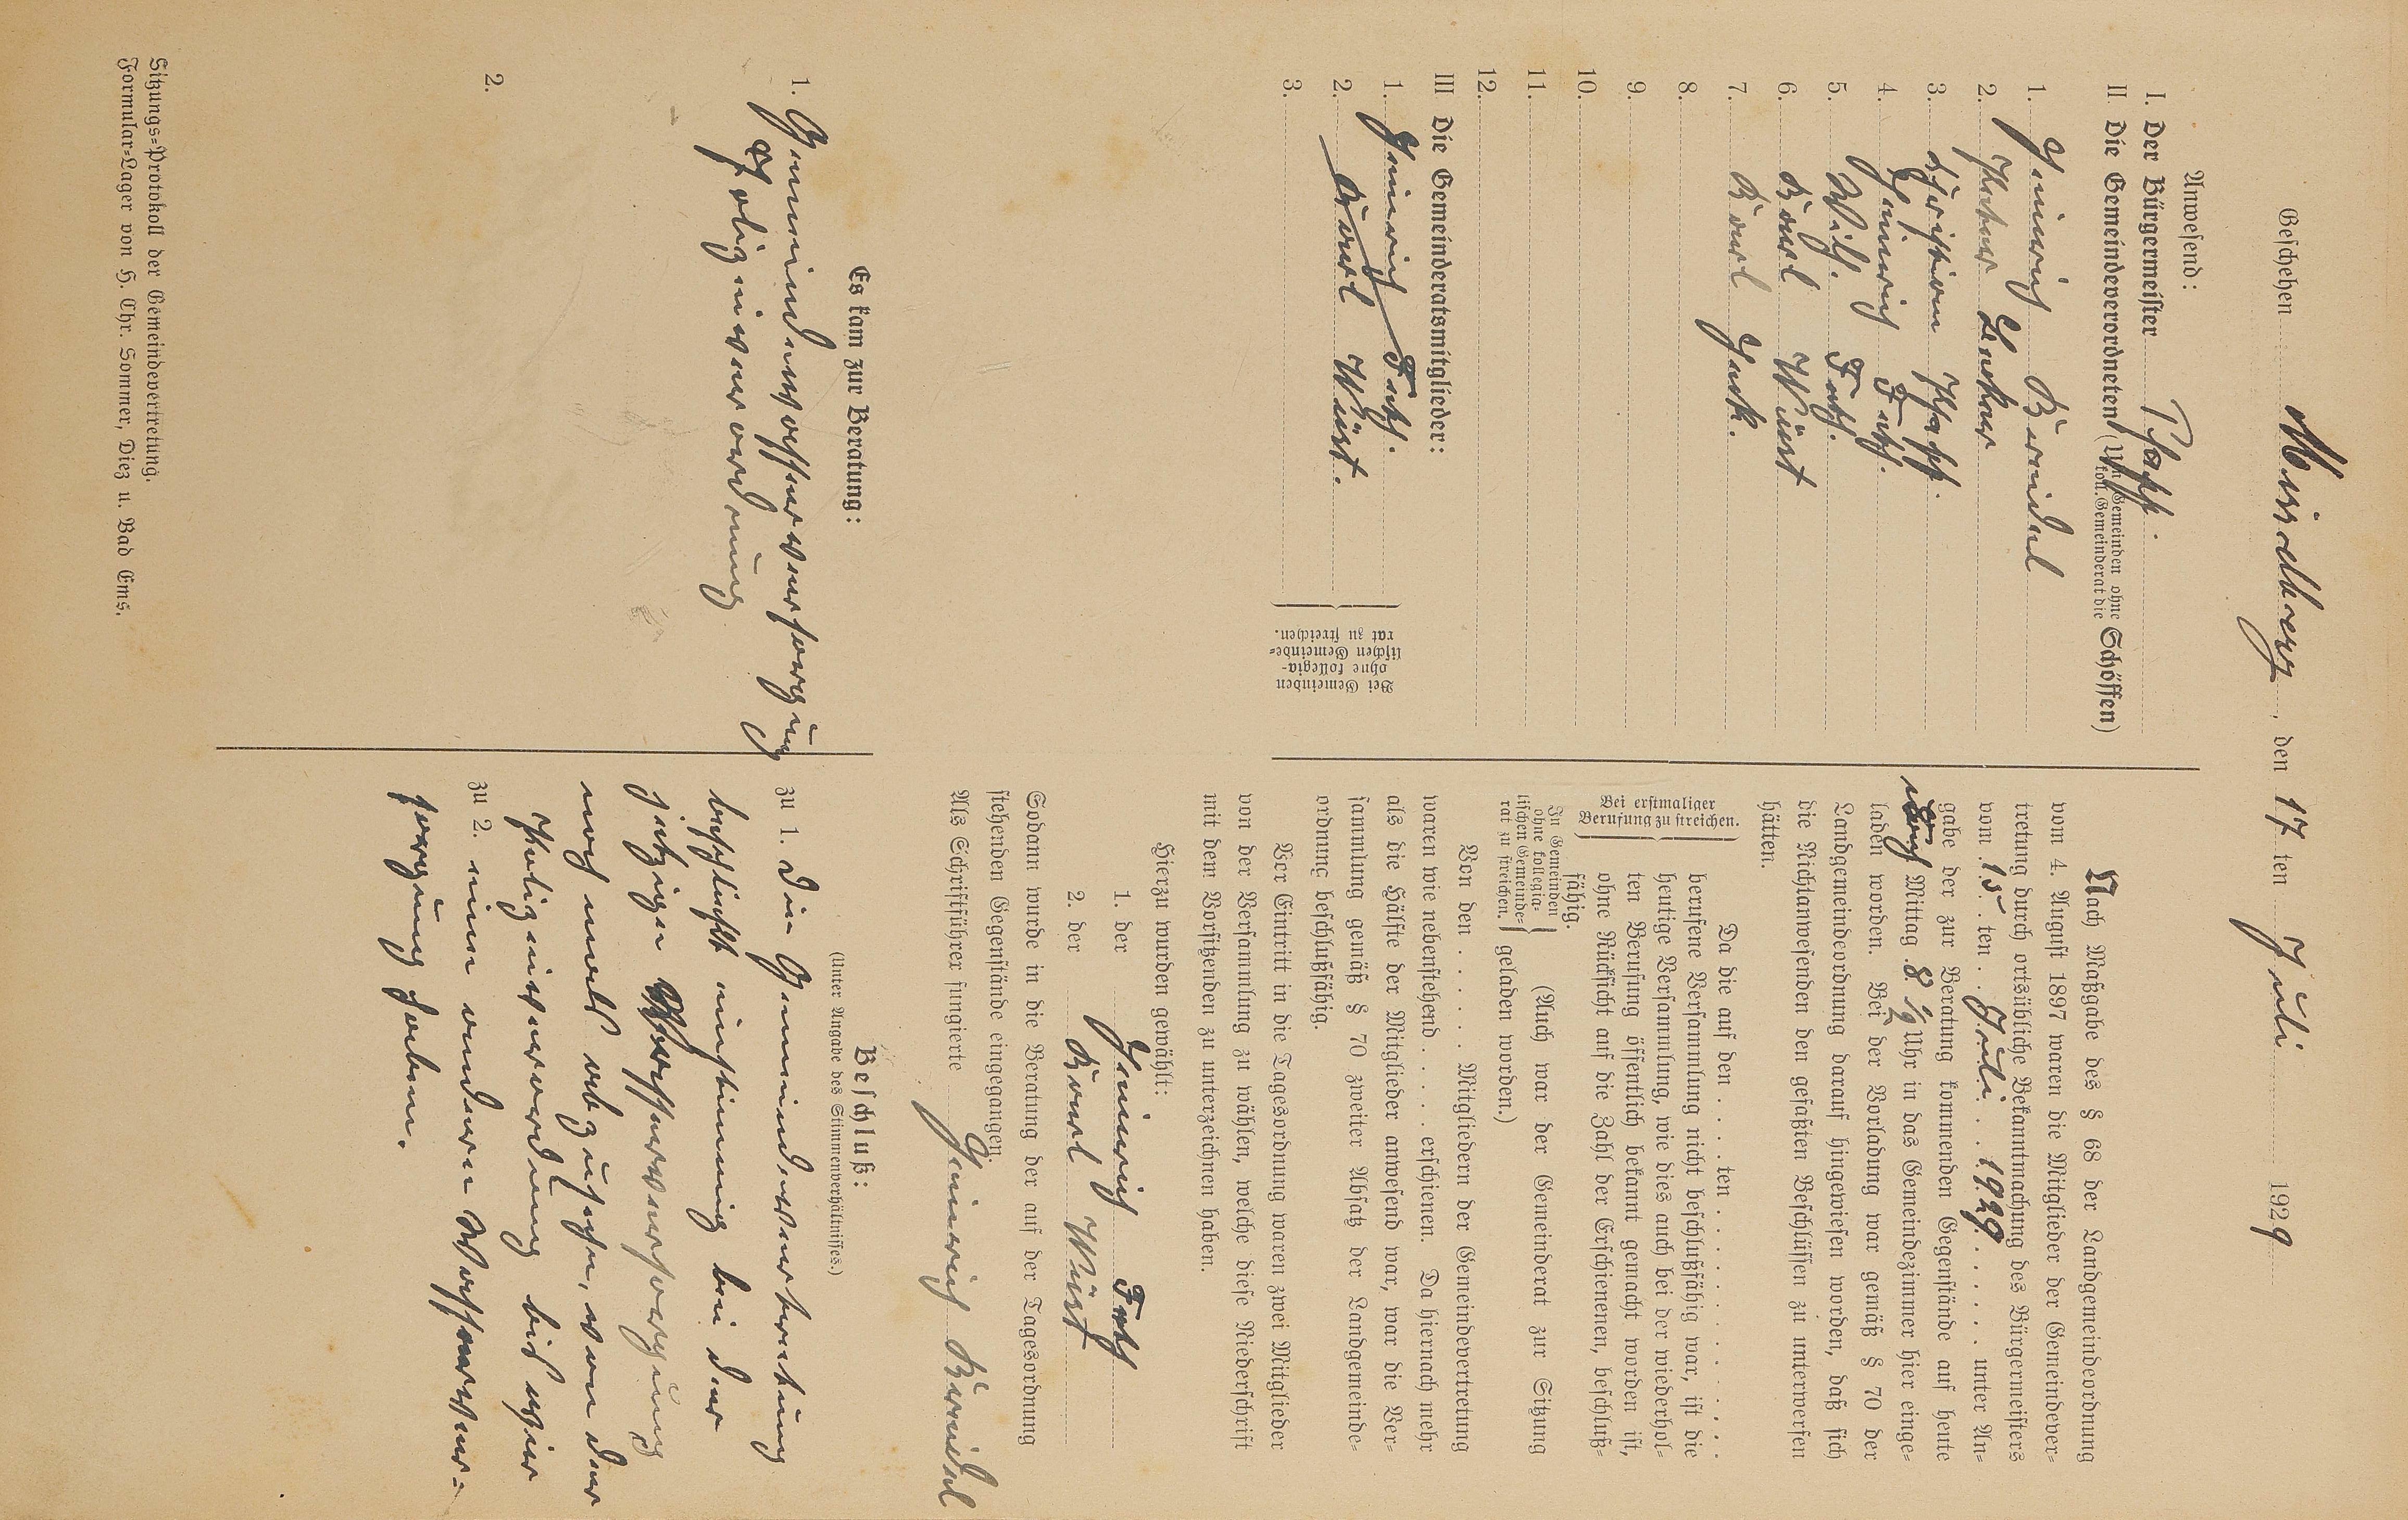 Geschehen Misselberg, den 17ten Juli 1929
Anwesend:
I. Der Bürgermeister Pfaff.
II Die Gemeindeverordneten (In Gemeinden ohne koll. Gemeinderat die Schöffen)
1. Heinrich Bremdel
2. Peter
3. Christian Pfaff.
4. Heinrich
5. Wilh.
6. Karl Wüst
7. Karl
8.
9.
10.
11.
12.
III Die Gemeinderatsmitglieder:
1. Heinrich
2. Karl Wüst.
3.
Bei Gemeinden
ohne kollegia-
lischen Gemeinde-
rat zu streichen.
Nach Maßgabe des § 68 der Landgemeindeordnung
vom 4. August 1897 waren die Mitglieder der Gemeindever-
tretung durch ortsübliche Bekanntmachung des Bürgermeisters
vom 15. ten . . Juli . . 1929 . . . . . unter An-
gabe der zur Beratung kommenden Gegenstände auf heute
nach Mittag 8 ½ Uhr in das Gemeindezimmer hier einge-
laden worden. Bei der Vorladung war gemäß § 70 der
Landgemeindeordnung darauf hingewiesen worden, daß sich
die Nichtanwesenden den gefaßten Beschlüssen zu unterwerfen
hätten.
Bei erstmaliger
Berufung zu streichen.
Da die auf den . . . . ten . . . . . . . . . . . . .
berufene Versammlung nicht beschlußfähig war, ist die
heutige Versammlung, wie dies auch bei der wiederhol-
ten Berufung öffentlich bekannt gemacht worden ist,
ohne Rücksicht auf die Zahl der Erschienenen, beschluß-
fähig.
In Gemeinden
ohne kollegia-
lischen Gemeinde-
rat zu streichen.
(Auch war der Gemeinderat zur Sitzung
geladen worden.)
Von den . . . . . . Mitgliedern der Gemeindevertretung
waren wie nebenstehend . . . . erschienen. Da hiernach mehr
als die Hälfte der Mitglieder anwesend war, war die Ver-
sammlung gemäß § 70 zweiter Absatz der Landgemeinde-
ordnung beschlußfähig.
Vor Eintritt in die Tagesordnung waren zwei Mitglieder
von der Versammlung zu wählen, welche diese Niederschrift
mit dem Vorsitzenden zu unterzeichnen haben.
Hierzu wurden gewählt:
1. der Heinrich
2. der Karl Wüst
Sodann wurde in die Beratung der auf der Tagesordnung
stehenden Gegenstände eingegangen.
Als Schriftführer fungierte Heinrich Bremdel
Es kam zur Beratung:
1. Gemeindewasserversorgung
Polizeiverordnung
2.
Beschluß:
(Unter Angabe des Stimmenverhältnisses.)
zu 1. Die Gemeindevertretung
beschließt einstimmig bei der
jetzigen Wasserversorgung
noch mal abzusehen, von der
Polizeiverordnung bis wir
zu 2. eine andere Wasserver-
sorgung haben.
Sitzungs-Protokoll der Gemeindevertretung.
Formular-Lager von H. Chr. Sommer, Diez u. Bad Ems.